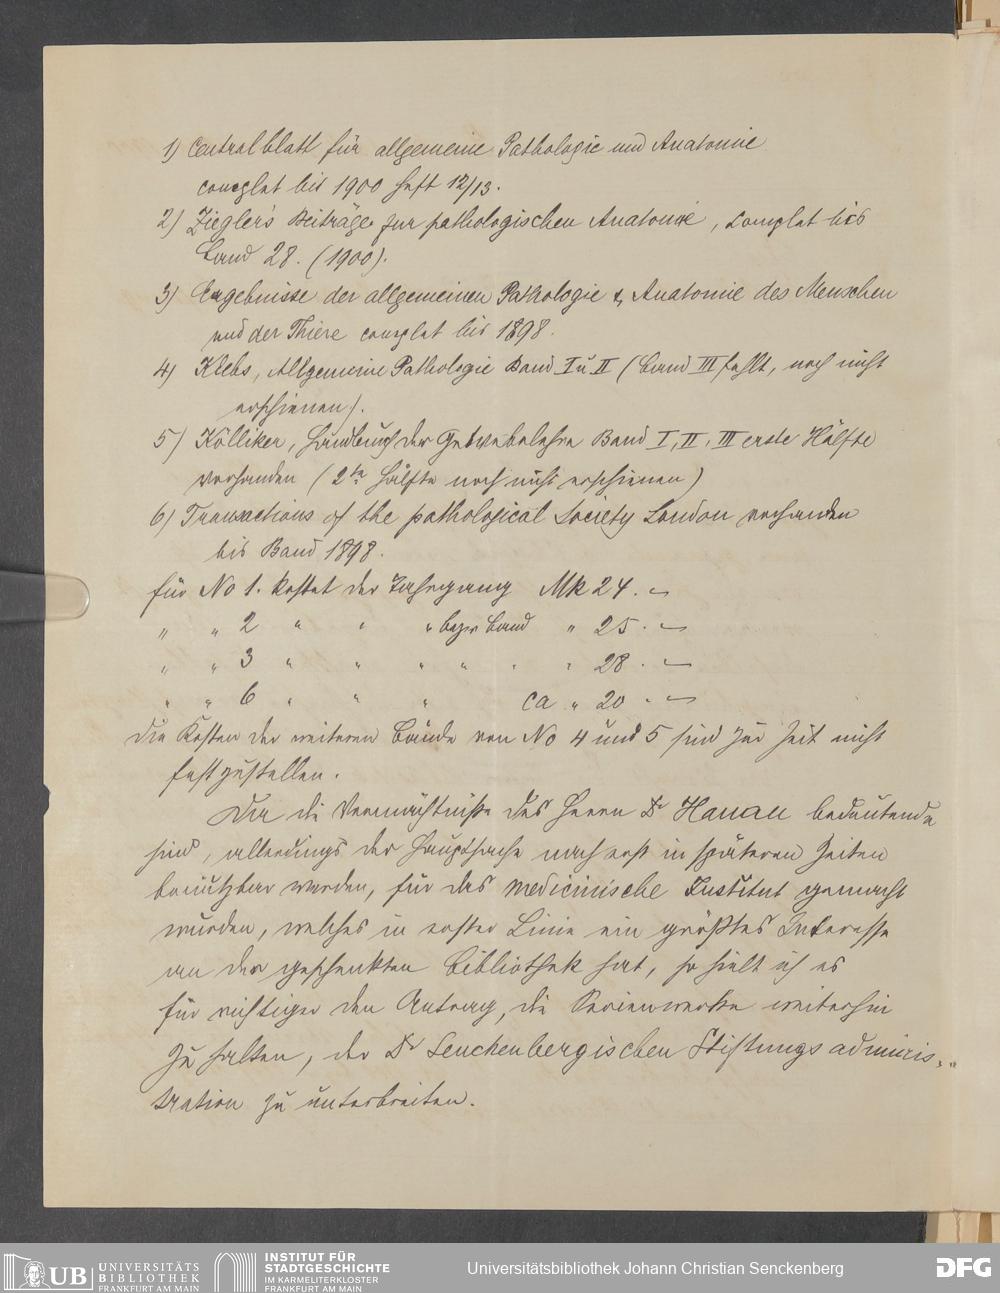 1) Centralblatt für allgemeine Pathologie und Anatomie
complet bis 1900 Heft 12/13.
2) Ziegler's Beiträge zur pathologischen Anatomie, complet bis
Band 28. (1900).
3) Ergebnisse der allgemeinen Pathologie & Anatomie des Menschen
und der Thiere complet bis 1898.
4) Klebs, Allgemeine Pathologie Band I u II (Band III fehlt, noch nicht
erschienen).
5) Kölliker, Handbuch der Gewebelehre Band I, II, III erste Hälfte
vorhanden (2te Hälfte noch nicht erschienen)
6) Transactions of the pathological Society London vorhanden
bis Band 1898.
für No 1. kostet der Jahrgang Mk 24. –
" " 2 " " " bezw Band " 25. –
" " 3 " " " " " " 28. –
" " 6 " " " ca " 20. –
Die Kosten der weiteren Bände von No 4 und 5 sind zur Zeit nicht
festzustellen.
Da die Vermächtnisse des Herrn Dr Hanau bedeutende
sind, allerdings der Hauptsache nach erst in späteren Zeiten
benützbar werden, für das medicinische Institut gemacht
wurden, welches in erster Linie ein größtes Interesse
an der geschenkten Bibliothek hat, so hielt ich es
für richtiger den Antrag, die Serienwerke weiterhin
zu halten, der Dr Senckenbergischen Stiftungsadminis-
tration zu unterbreiten.
UB UNIVERSITÄTS
BIBLIOTHEK
FRANKFURT AM MAIN
INSTITUT FÜR
STADTGESCHICHTE
IM KARMELITERKLOSTER
FRANKFURT AM MAIN
Universitätsbibliothek Johann Christian Senckenberg
DFG